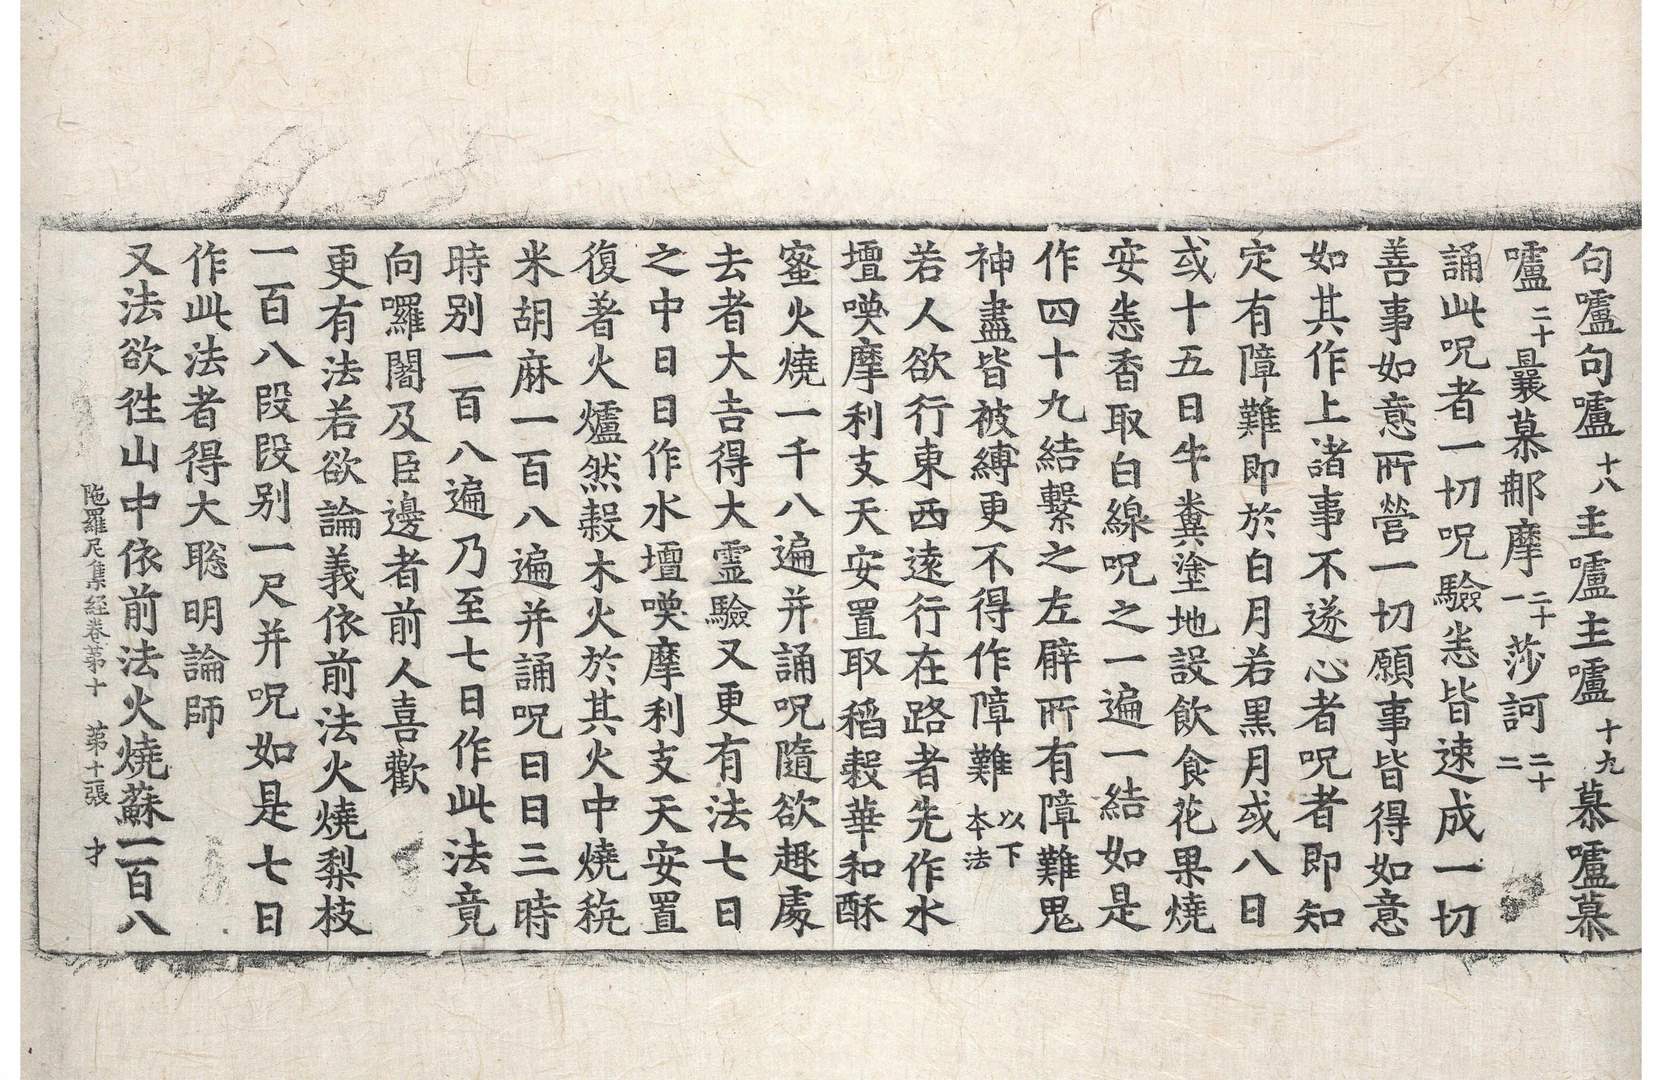 句嚧句嚧十八主嚧主嚧十九慕嚧慕
嚧二十曩慕那摩二十一莎訶二十二
誦此呪者一切呪驗悉皆速成一切
善事如意所營一切願事皆得如意
如其作上諸事不遂心者呪者即知
定有障難即於白月若黑月或八日
或十五日牛糞塗地設飲食花果燒
安悉香取白線呪之一遍一結如是
作四十九結繫之左臂所有障難鬼
神盡皆被縛更不得作障難以下本法
若人欲行東西遠行在路者先作水
壇喚摩利支天安置取稻穀華和酥
蜜火燒一千八遍并誦呪隨欲趣處
去者大吉得大靈驗又更有法七日
之中日日作水壇喚摩利支天安置
復著火爐然穀木火於其火中燒粇
米胡麻一百八遍并誦呪日日三時
時別一百八遍乃至七日作此法竟
向囉闍及臣邊者前人喜歡
更有法若欲論義依前法火燒梨枝
一百八段段別一尺并呪如是七日
作此法者得大聡明論師
又法欲往山中依前法火燒蘇一百八
陁羅尼集経卷苐十 苐十張 才